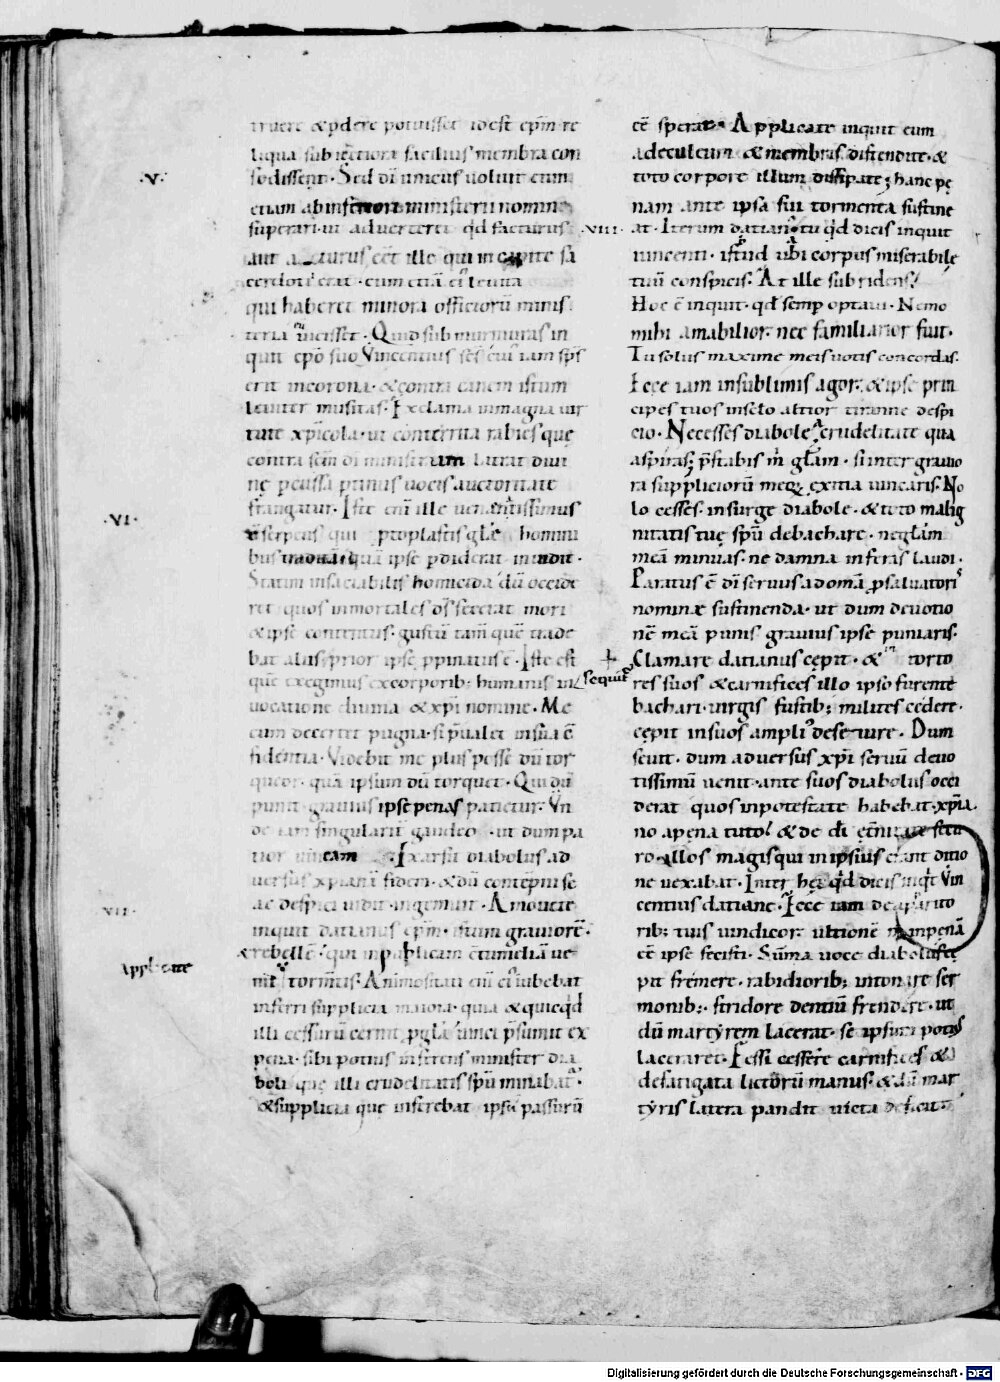 truere & pdere potuisset idest epm re
liqua subiectiora facilius membra con
fodissent. Sed dni unicus voluit eum
.V.
etiam ab inferiori ministerii nomine
superari. ut adverteret qd facturus
aut acturus eet ille qui in capite sa
cerdotii erat. cum etiā ei levita
qui haberet minora officiorū minis
teria vicisset. Quid submurmuras in
quit epo suo Vincentius scs cui iam sps
erit in corona. & contra canem istum
leviter musitas. Exclama in magna vir
tute xpicola. ut conterrita rabies que
contra scm dī ministrum latrat divi
ne pcussa ptinus vocis auctoritate
frangatur. Iste enī ille venenatissimus
.VI.
serpens qui protoplastis glē homini
bus quā ipse pdiderat invidit.
Statim insatiabilis homicida dū occide
rit quos inmortales dš fecerat mori
& ipse contentus gustū tam quē trade
bat aliis prior ipse ppinatus ē. Iste est
quē exegimus excorporib; humanis in
vocatione divina & xpi nomine. Me
cum decertet pugna si pvalet insūa ē
fidentia. Videbit me plus posse dū tor
queor. quā ipsum dū torquet. Qui dū
punit gravius ipse penas patietur. Un
de iam singulariū gaudeo. ut dum pa
tior vincam Exarsit diabolus ad
versus xpianā fidem. & dū contēpni se
ac despici vidit ingemuit. Amovete
.VII.
inquit datianus epm. istum graviorē
rebellē. qui in publicam ctumeliā ve
Applicate
nit tormtis. Animositati enī ei iubebat
inferri supplicia maiora. quia & quicqd
illi cessurū cernit pglē vinci psumit ex
pena. sibi potius inferens minister dia
boli que illi crudelitatis spū minabat.
& supplicia que inferebat ipsū passurū
eē sperat. Applicate inquit eum
ad eculeum & membris distendite. &
toto corpore illum dissipate; hanc pę
nam ante ipsa sui tormenta sustine
.VIII.
at. Iterum datian. tu qd dicis inquit
vincenti. istud ubi corpus miserabile
tuū conspicis. At ille subridens.
Hoc ē inquit. qd semp optavi. Nemo
mihi amabilior. nec familiarior fuit.
Tu solus maxime meis votis concordas.
Ecce iam in sublimis agor. & ipse prin
cipes tuos in sclo altior tiranne despi
cio. Necesses diabole crudelitate qua
aspiras; pstabis m̄ glam. si inter gravio
ra suppliciorū meoȝ exitia vincaris. No
lo cesses. insurge diabole. & toto malig
nitatis tuę spū debachare. neglam
meā minuas. ne damna inferas laudi.
Paratus ē dī servus ad omā psalvatoris
nominæ sustinenda. ut dum devotio
nē meā punis gravius ipse puniaris.
+ sequit
Clamare datianus cępit. & in torto
res suos & carnifices illo ipso furente
bachari. virgis fustib; milites cedere.
cępit in suos ampli desevire. Dum
sevit. dum adversus xpi servū devo
tissimū venit. ante suos diabolus occi
derat quos in potestate habebat. xpia
no apena tuto. & de di etnitate secu
ro. Illos magis qui in ipsius erant ditio
ne vexabat. Inter hęc qd dicis inqt Vin
centius datiane. Ecce iam de aparito
rib; tuis vindicor. ultionē meāmpenā
eē ipse fecisti. Sūma voce diabolus cę
pit fremere. rabidiorib; intonare ser
monib;. stridore dentiū frendere. ut
dū martyrem lacerat. se ipsum potius
laceraret. Fessi cessere carnifices &
defatigata lictorū manus. & dū mar
tyris latera pandit victa deficit.
Digitalisierung gefördert durch die Deutsche Forschungsgemeinschaft - DFG